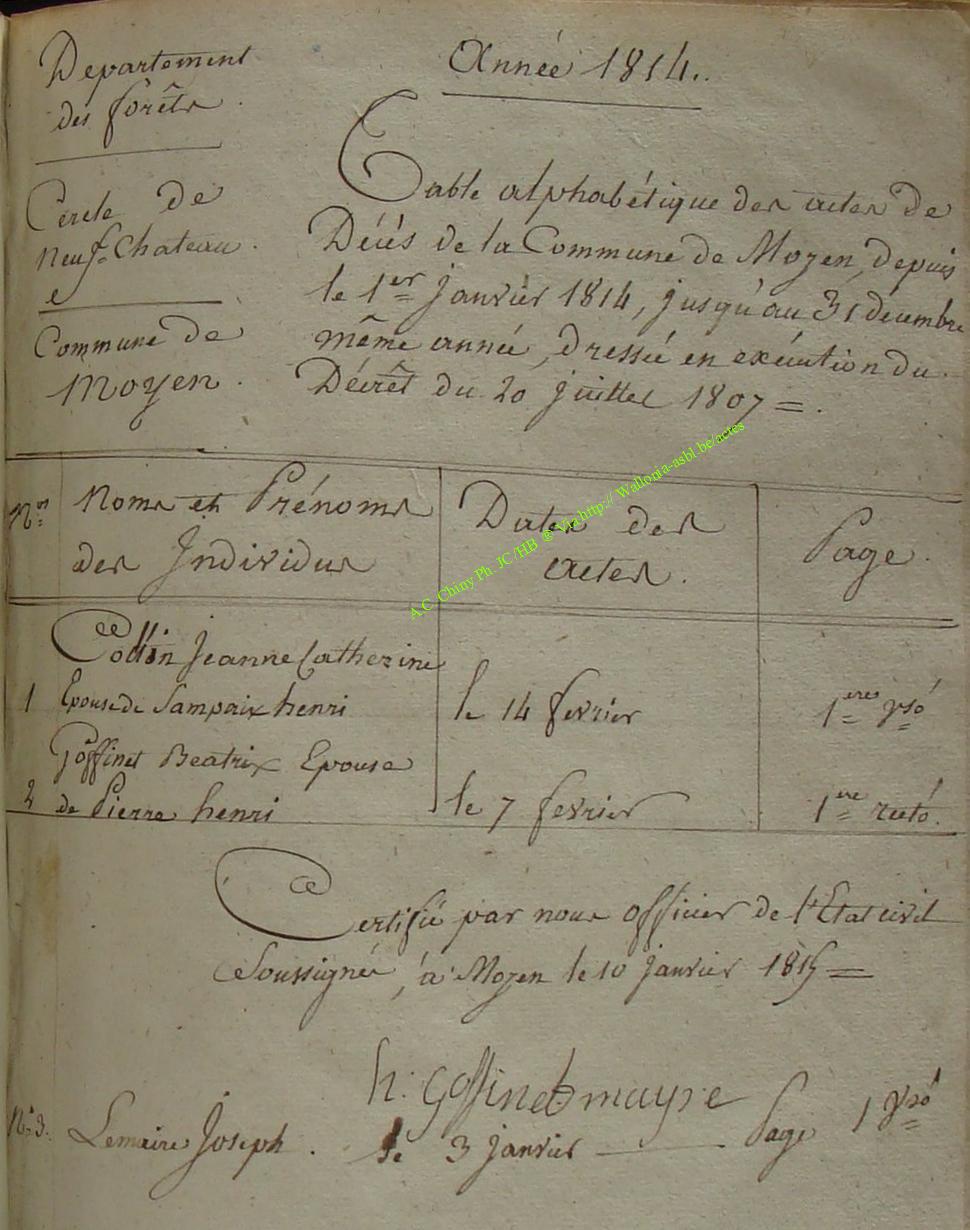 Departement
des forêts.
Cercle de
Neuf-Chateau.
Commune de
Moyen.
Année 1814.
Table alphabétique des actes de
Décés de la Commune de Moyen, depuis
le 1er janvier 1814, jusqu'au 31 décembre
même année, dressée en exécution du
Décrêt du 20 juillet 1807 =.
Nos
Noms et Prénoms
des Individus
Dates des
actes.
Page.
Collin Jeanne Catherine
1 Epouse de Sampaix henri le 14 fevrier 1ere vso
Goffinet Beatrix Epouse
2 de Pierre henri le 7 fevrier 1ere recto.
Certifié par nous officier de l'Etat civil
Soussigné, à Moyen le 10 janvier 1815 =
h. Goffinet mayre
No 3. Lemaire Joseph. le 3 janvier — Page 1 vso
A.C. Chiny Ph. JC/HB @ Via http:// Wallonia-asbl.be/actes